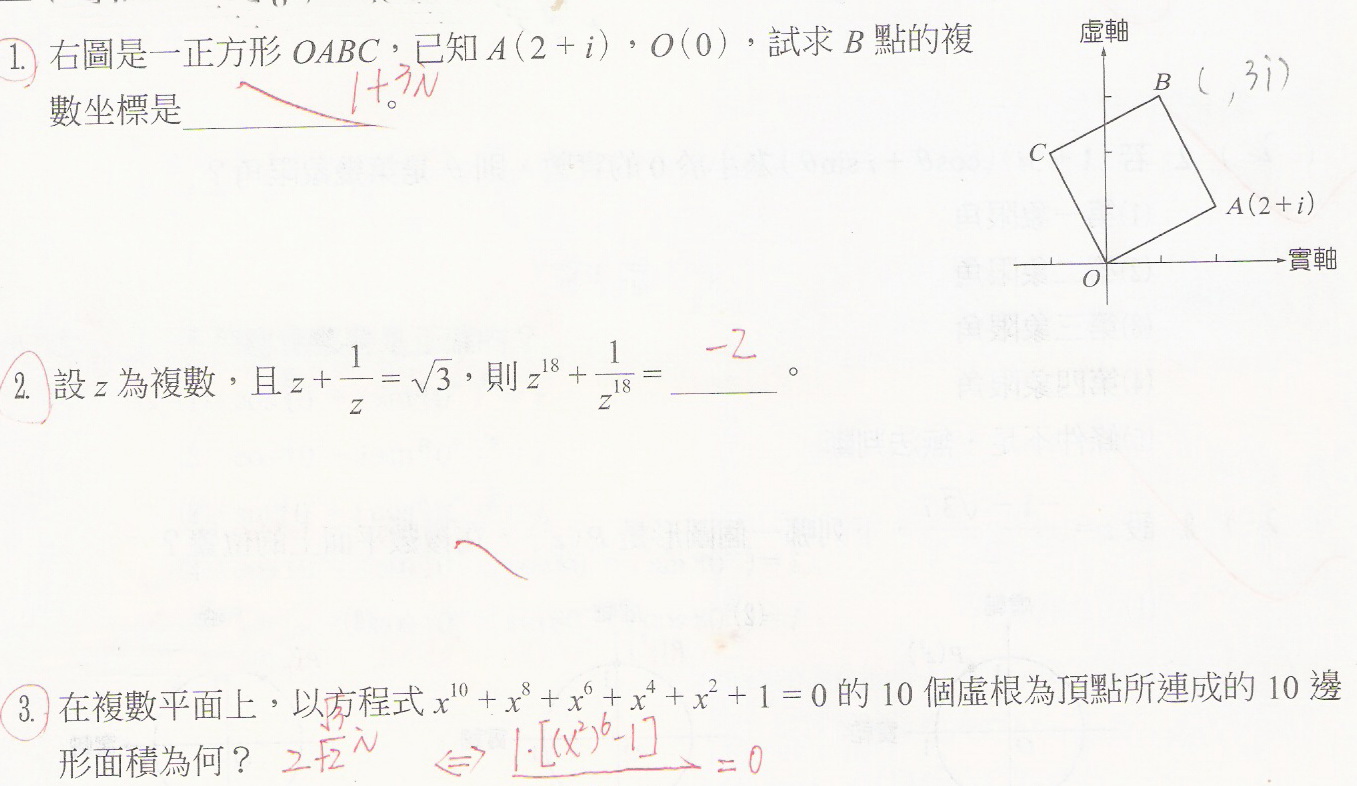 1. 右圖是一正方形 OABC，已知 A(2+i)，O(0)，試求 B 點的複
數坐標是 1+3i 。
虛軸
B ( , 3i)
C
A(2+i)
O
實軸
2. 設 z 為複數，且 z + 1/z = √3，則 z¹⁸ + 1/z¹⁸ = -2 。
3. 在複數平面上，以方程式 x¹⁰ + x⁸ + x⁶ + x⁴ + x² + 1 = 0 的 10 個虛根為頂點所連成的 10 邊
形面積為何？ ⇔ 1·[(x²)⁶-1] = 0